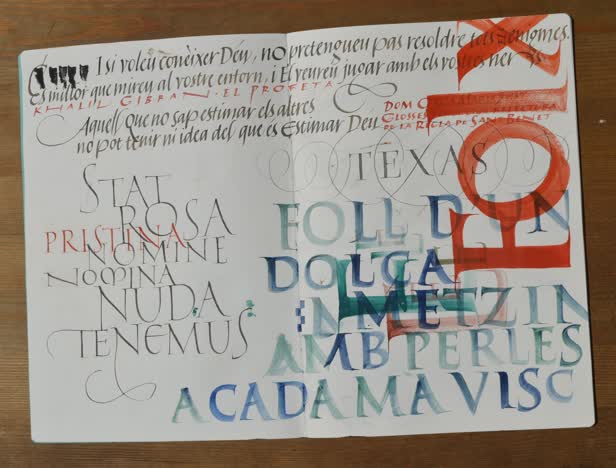 I si voleu conèixer Déu, no pretengueu pas resoldre tots enigmes.
És millor que mireu al vostre entorn, i El veureu jugar amb els vostres
KHALIL GIBRAN · EL PROFETA
Aquell que no sap estimar els altres
no pot tenir ni idea del que és Estimar Déu
DOM
GLOSSES
DE LA REGLA DE SANT BENET
TEXAS
STAT
ROSA
PRISTINA
NOMINE
NOMINA
NUDA
TENEMUS
FOIX
FOLL D'UN
DOLÇA
METZIN
AMB PERLES
A CADA MAVISC